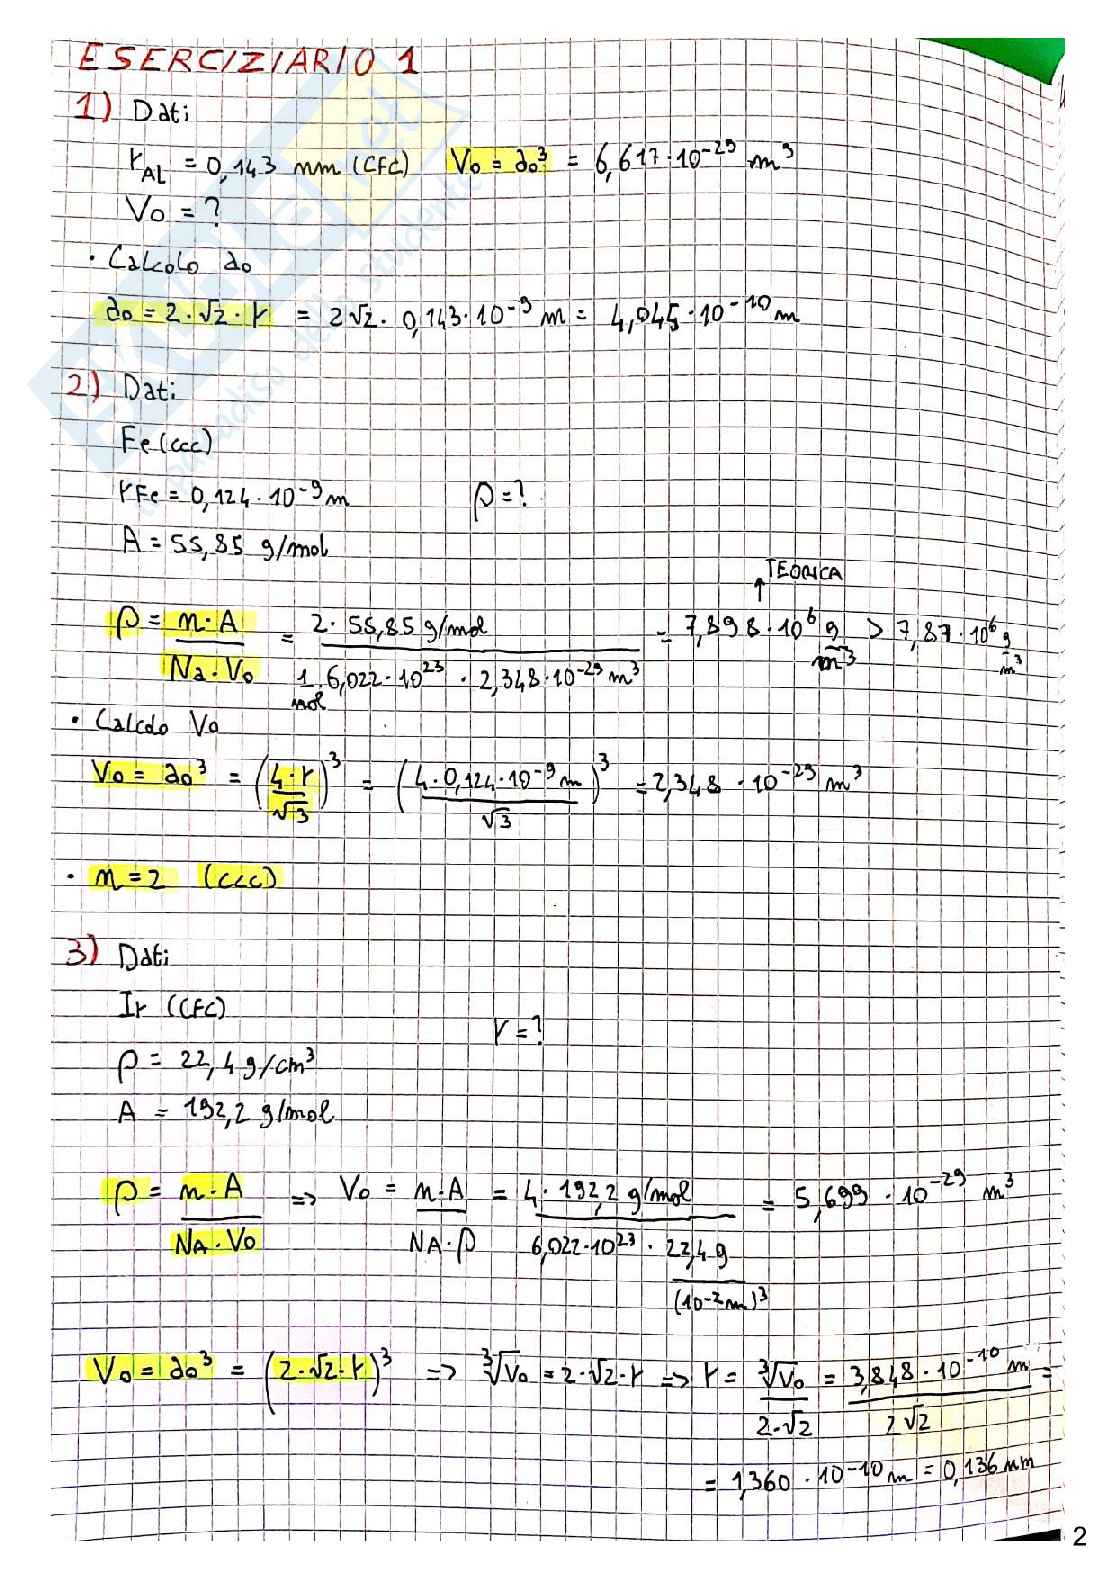 ESERCIZIARIO 1
1) Dati
r_AL = 0,143 nm (CFC) V₀ = a₀³ = 6,617·10⁻²⁹ m³
V₀ = ?
• Calcolo a₀
a₀ = 2·√2·r = 2√2·0,143·10⁻⁹ m = 4,045·10⁻¹⁰ m
2) Dati
Fe (CCC)
r_Fe = 0,124·10⁻⁹ m ρ = ?
A = 55,85 g/mol
↑ TEORICA
ρ = n·A / (N_A·V₀) = 2·55,85 g/mol / (1/mol 6,022·10²³ · 2,348·10⁻²⁹ m³) = 7,898·10⁶ g/m³ > 7,87·10⁶ g/m³
• Calcolo V₀
V₀ = a₀³ = (4·r/√3)³ = (4·0,124·10⁻⁹ m/√3)³ = 2,348·10⁻²⁹ m³
• n = 2 (CCC)
3) Dati
Ir (CFC)
r = ?
ρ = 22,4 g/cm³
A = 192,2 g/mol
ρ = n·A / (N_A·V₀) => V₀ = n·A / (N_A·ρ) = 4·192,2 g/mol / (6,022·10²³ · 22,4 g/(10⁻² m)³) = 5,699·10⁻²⁹ m³
V₀ = a₀³ = (2·√2·r)³ => ³√V₀ = 2·√2·r => r = ³√V₀ / (2·√2) = 3,848·10⁻¹⁰ m / (2√2) =
= 1,360·10⁻¹⁰ m = 0,136 nm
2